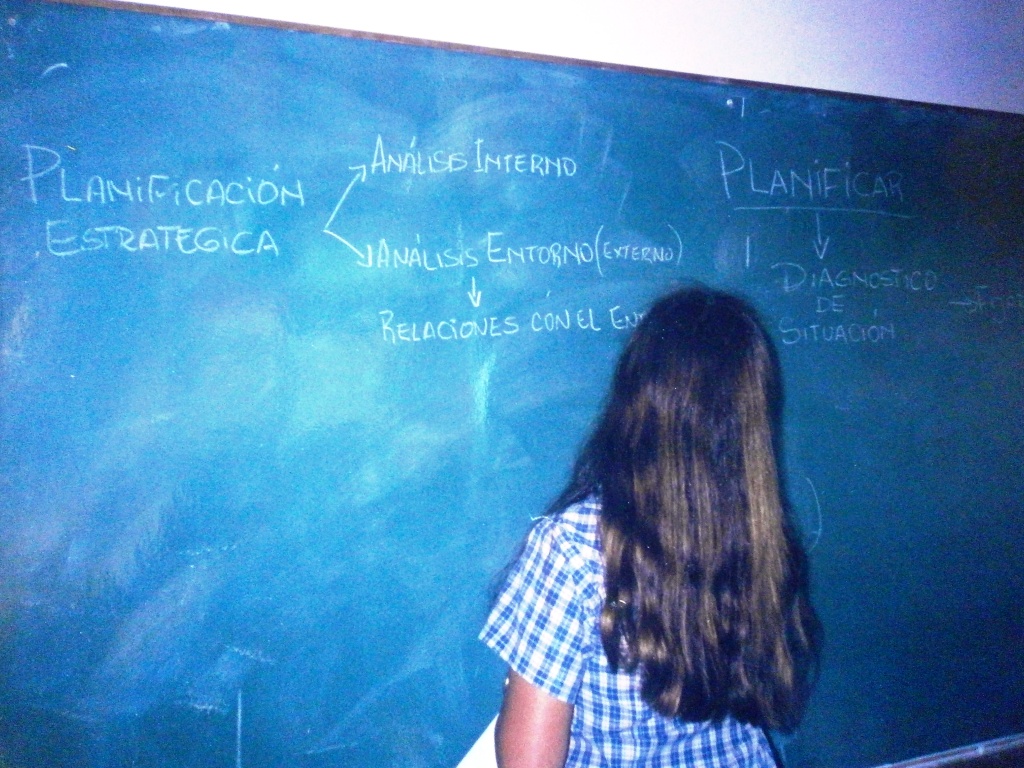 PLANIFICACIÓN
ESTRATEGICA
ANÁLISIS INTERNO
ANÁLISIS ENTORNO (EXTERNO)
RELACIONES CON EL
PLANIFICAR
DIAGNOSTICO
DE
SITUACIÓN